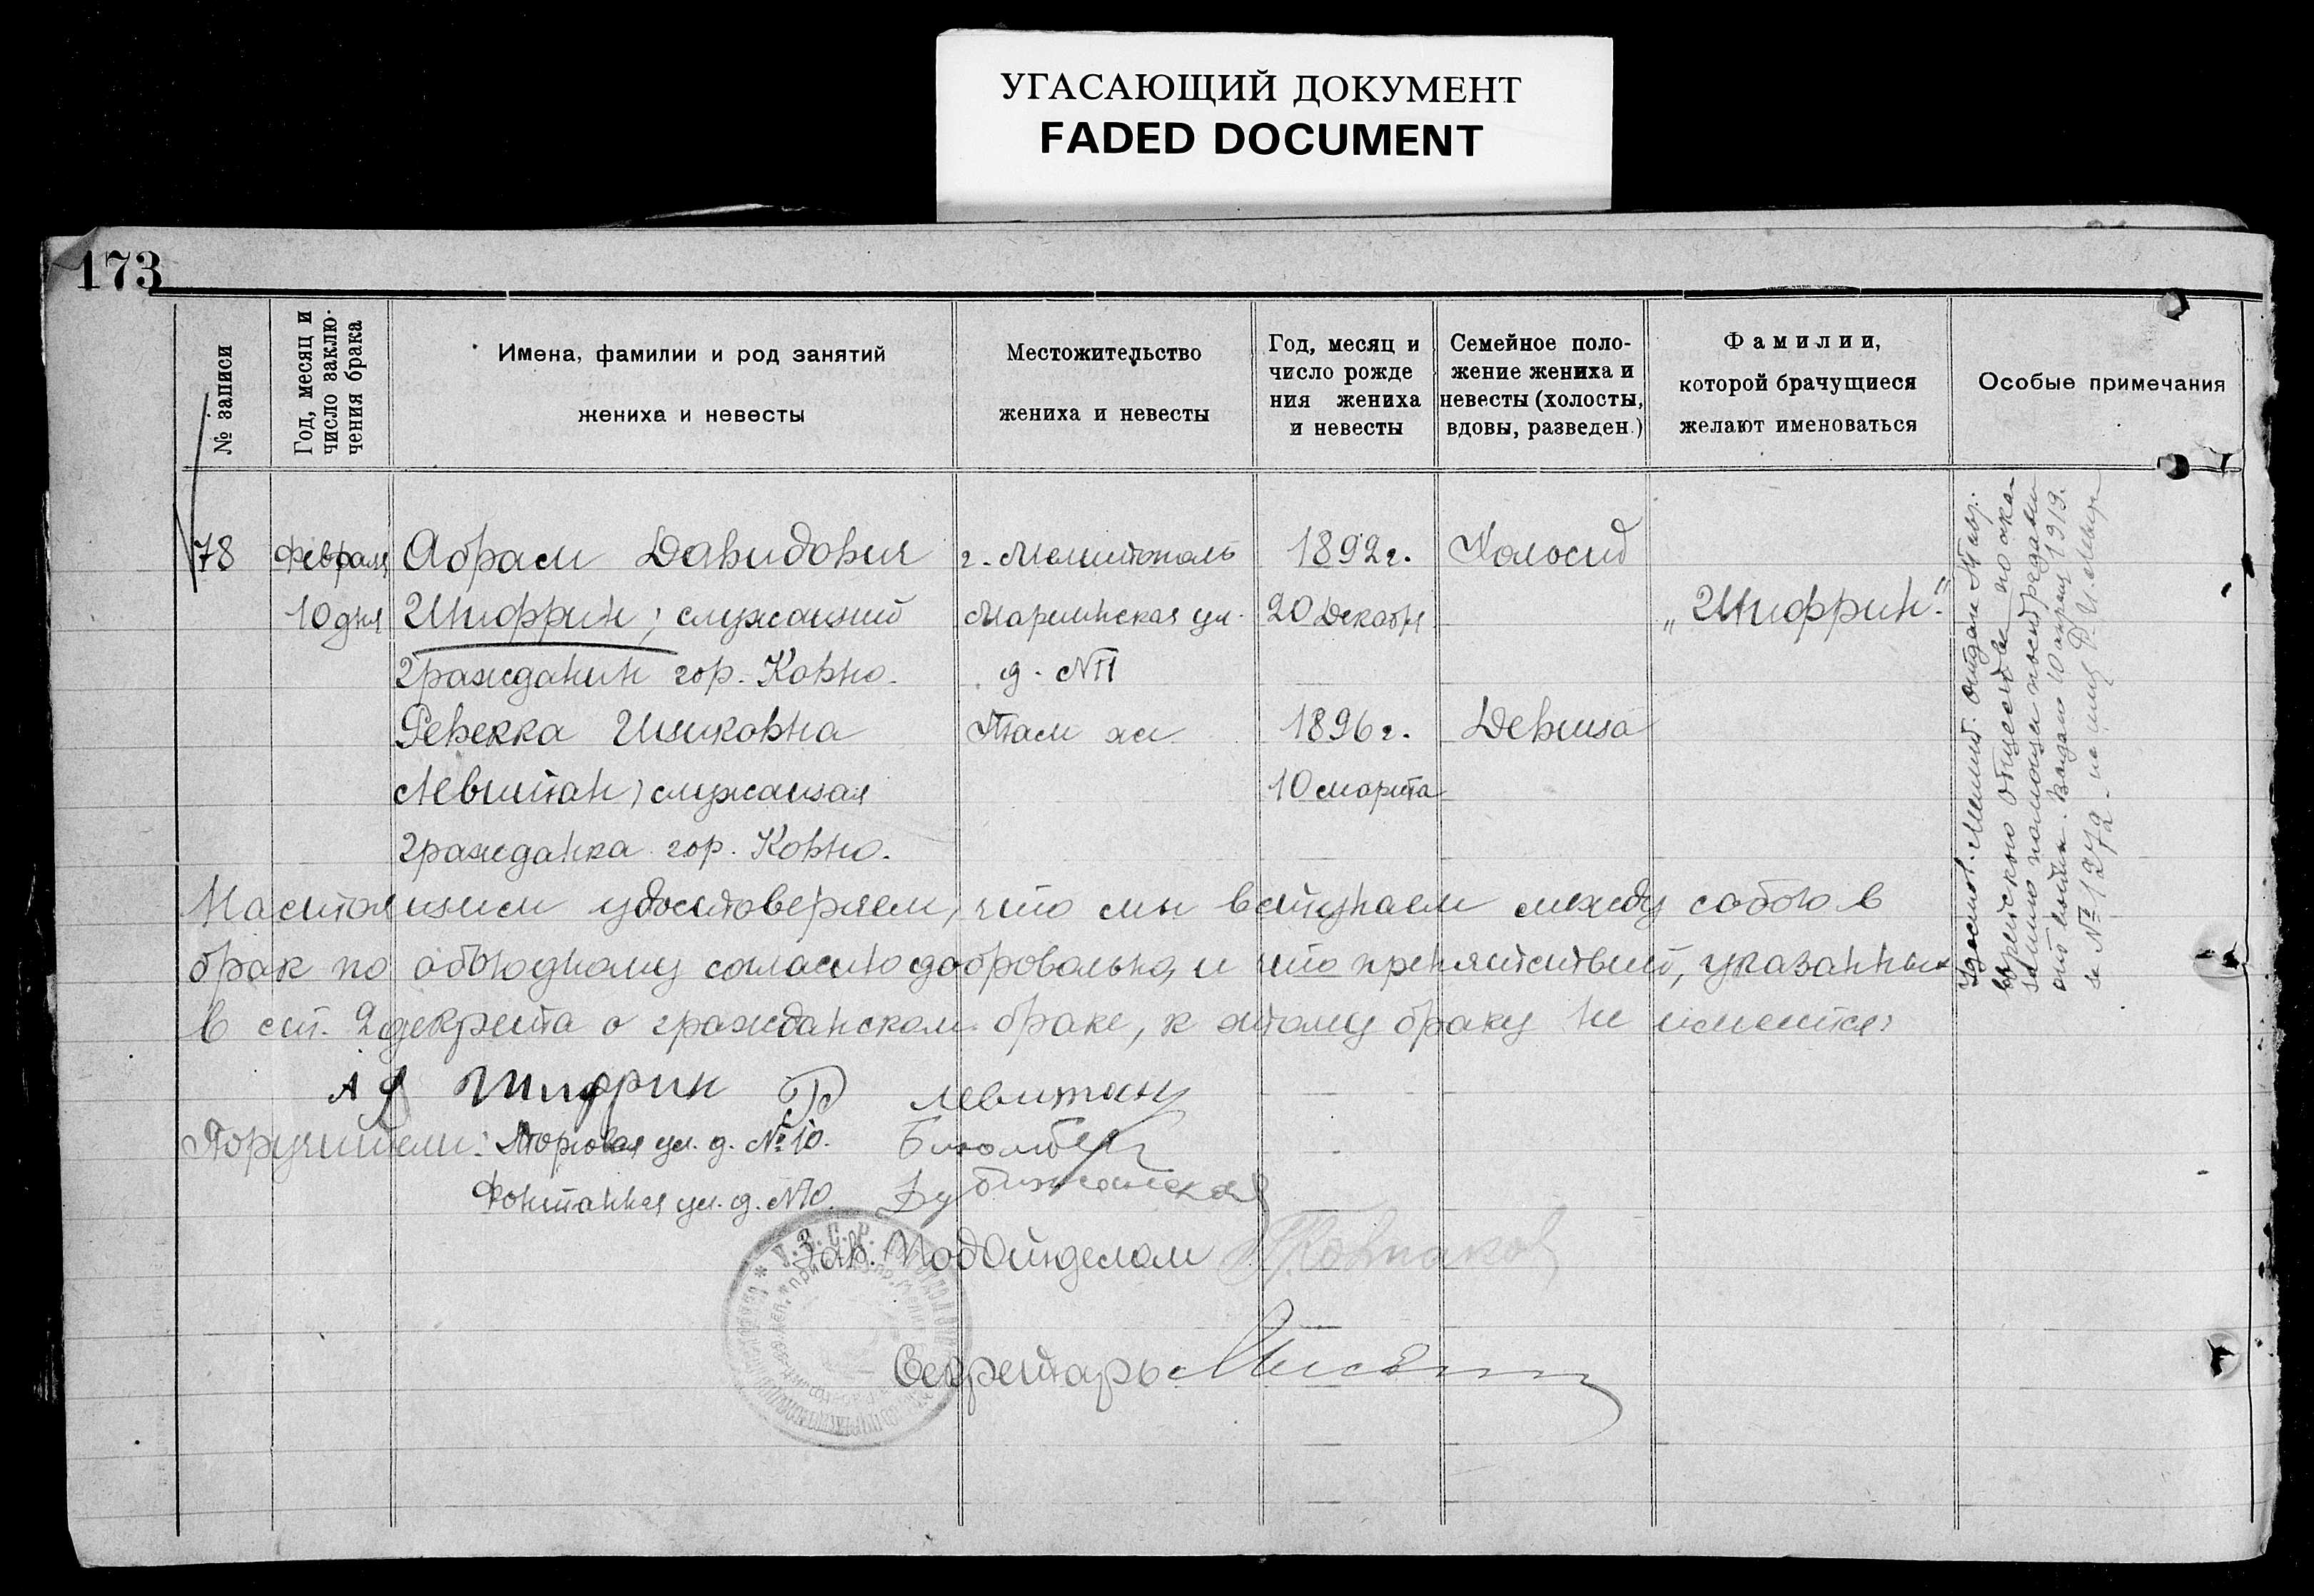 УГАСАЮЩИЙ ДОКУМЕНТ
FADED DOCUMENT
173
№ записи
Год, месяц и
число заклю-
чения брака
Имена, фамилии и род занятий
жениха и невесты
Местожительство
жениха и невесты
Год, месяц и
число рожде
ния жениха
и невесты
Семейное поло-
жение жениха и
невесты (холосты,
вдовы, разведен.)
Фамилии,
которой брачущиеся
желают именоваться
Особые примечания
78 Февраля Абрам Давидович г. Мелитополь 1892 г. Холост
10 дня Шифрин; служащий Мариинская ул. 20 Декабря „Шифрин"
гражданин гор. Ковно. д. №11
Ревекка Ициковна Там же 1896 г. Девица
Левитан; служащая 10 марта
гражданка гор. Ковно.
Настоящим удостоверяем, что мы вступаем между собою в
брак по обоюдному согласию добровольно, и что препятствий, указанных
в ст. 2 декрета о гражданском браке, к этому браку не имеется:
А Д Шифрин Р Левитан
Поручители: Торговая ул. д. № 10.
Фонтанная ул. д. №10.
Зав. Подотделом
Секретарь
У.С.С.Р.
еврейского общества по ока-
занию помощи пострадавшим
от войны. Выдано 10 апреля 1919 г.
за №